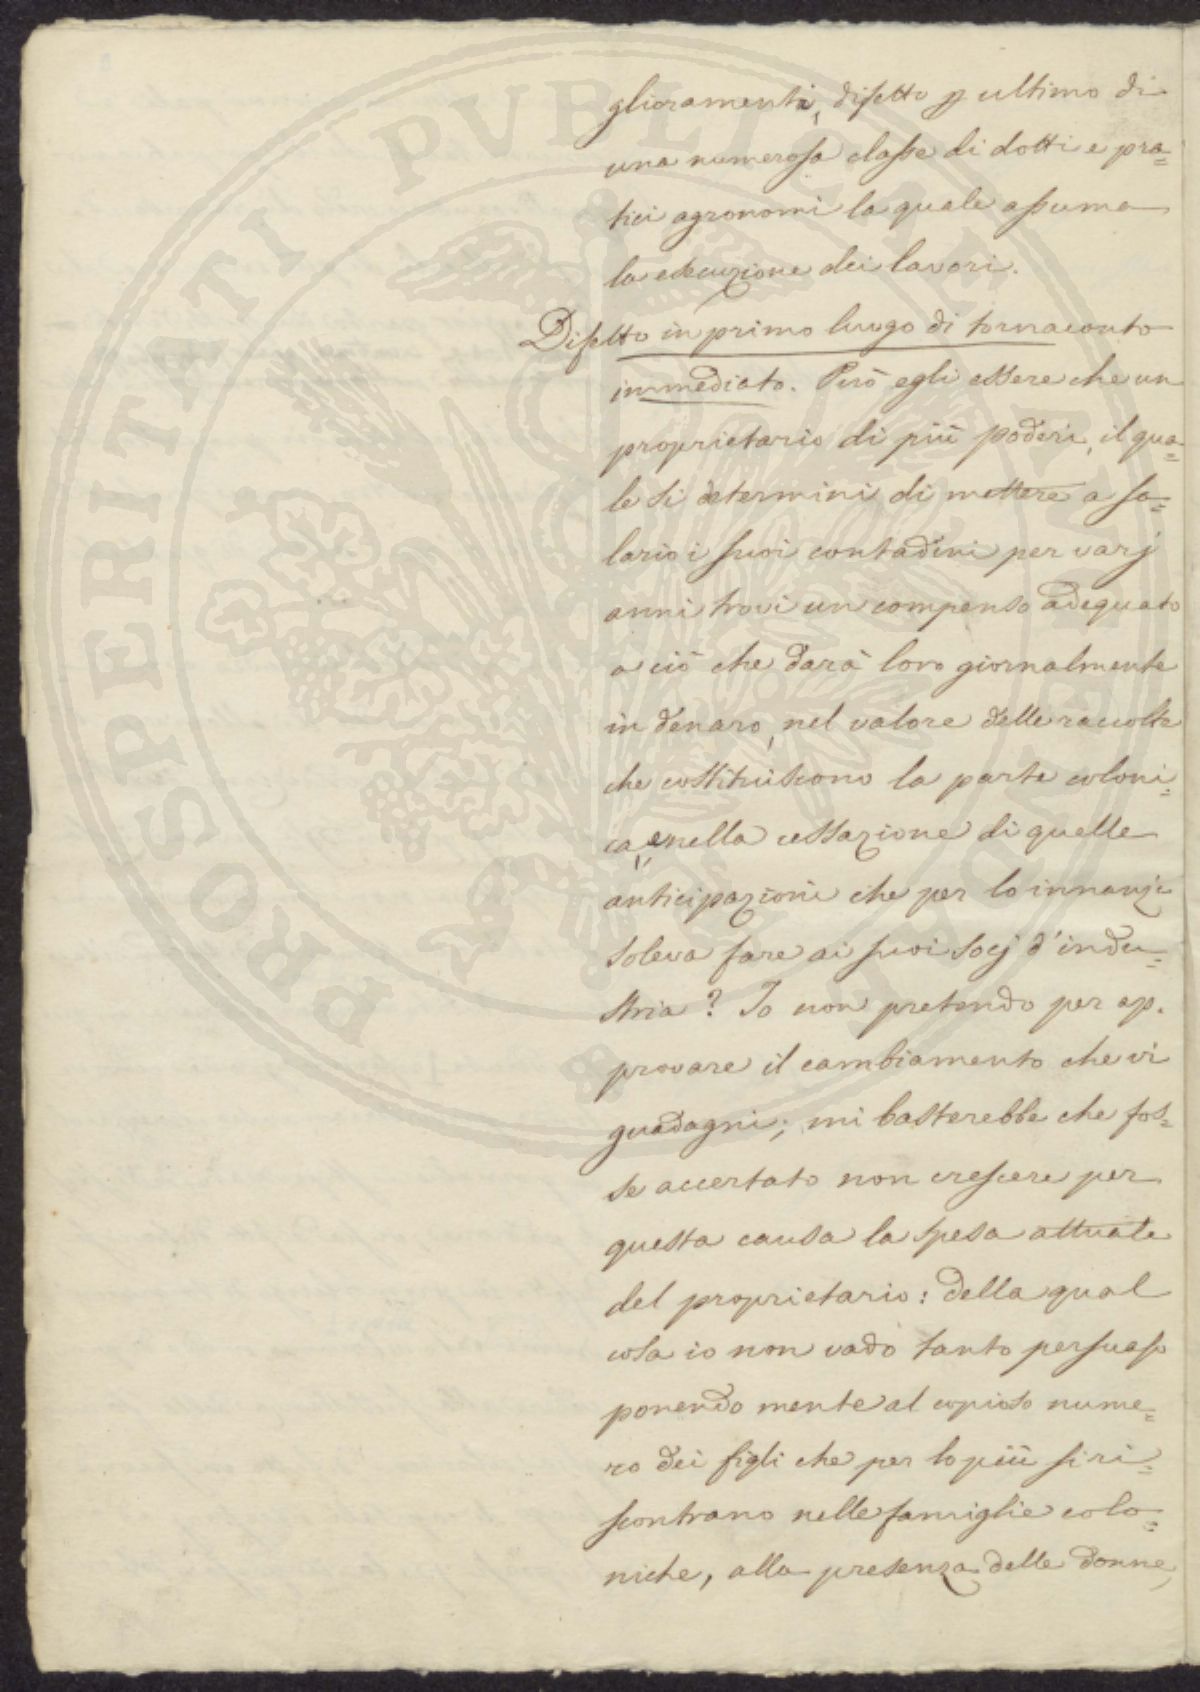 glioramenti, difetto p ultimo di
una numerosa classe di dotti e pra=
tici agronomi la quale assuma
la esecuzione dei lavori.
Difetto in primo luogo di tornaconto
immediato. Può egli essere che un
proprietario di più poderi, il qua=
le si determini di mettere a sa=
lario i suoi contadini per varj
anni trovi un compenso adeguato
a ciò che darà loro giornalmente
in denaro, nel valore delle raccolte
che costituiscono la parte coloni=
ca, e nella cessazione di quelle
anticipazioni che per lo innanzi
soleva fare ai suoi socj d'indu=
stria? Io non pretendo per ap=
provare il cambiamento che vi
guadagni; mi basterebbe che fos=
se accertato non crescere per
questa causa la spesa attuale
del proprietario: della qual
cosa io non vado tanto persuaso
ponendo mente al copioso nume=
ro dei figli che per lo più si ri=
scontrano nelle famiglie colo=
niche, alla presenza delle donne,
PROSPERITATI PVBLICAE AVGENDAE